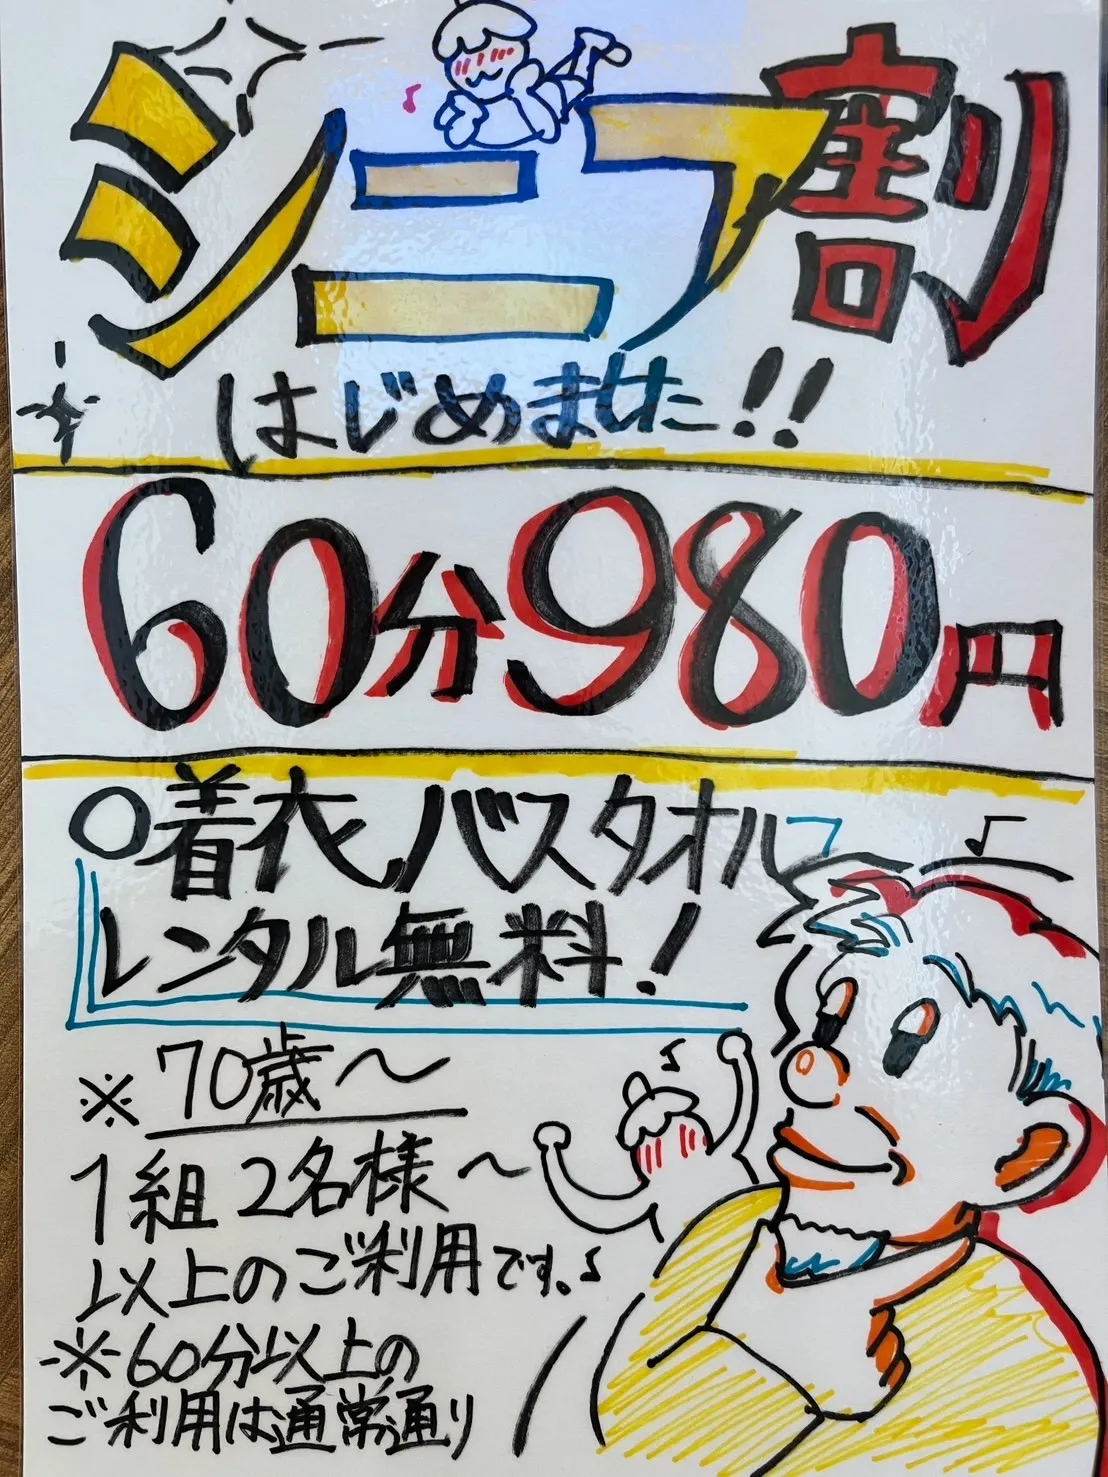 シニア割
はじめました!!
60分980円
○着衣、バスタオル
レンタル無料!
※70歳〜
1組2名様〜
以上のご利用です。♪
※60分以上の
ご利用は通常通り